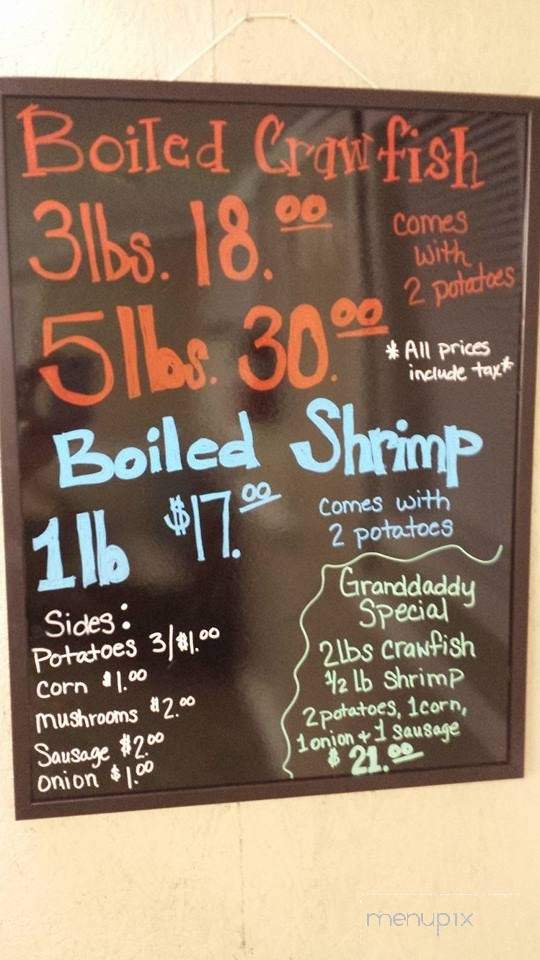 Boiled Crawfish
3lbs. 18.00
comes
with
2 potatoes
5lbs. 30.00
* All prices
include tax*
Boiled Shrimp
1lb $17.00
comes with
2 potatoes
Sides:
Potatoes 3/$1.00
Corn $1.00
mushrooms $2.00
Sausage $2.00
Onion $1.00
Granddaddy
Special
2lbs crawfish
1/2 lb shrimp
2 potatoes, 1 corn,
1 onion + 1 sausage
$21.00
menupix